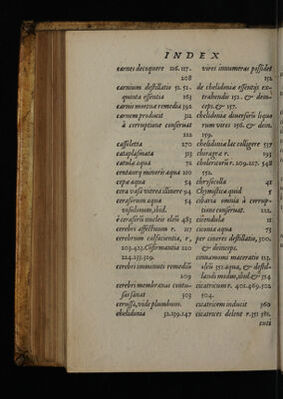 INDEX
carnes decoquere 116.117.
208
carnium destillatio 51.52.
quinta essentia 165
carnis mortuæ remedia 392
carnem producit 312
à corruptione conseruat
122
cassiletta 270
cataplasmata 313
catula aqua 72
centaurij minoris aqua 210
cepæ aqua 54
cera vasa vitrea illinere 94
cerasorum aqua 54
insulsorum, ibid.
è cerasorū nucleis oleū 485
cerebri affectuum r. 117
cerebrum calfacientia, r,
203.423. Confirmantia 220
224.233.529.
cerebri immunitati remediū
209
cerebri membranas contu-
sas sanat 303
cerussa, vide plumbum.
chelidonia 52.139.147
vires innumeras possidet
152
de chelidoniæ essentijs ex-
trahendis 152. & dein-
ceps. & 157.
chelidoniæ diuersis liquo
rum vires 156. & dein.
159.
chelidonia lac colligere 537
chiragræ r. 193
cholericorū r. 209.227. 548
552.
chrysocolla 41
Chymistica quid 5
cibaria omnia à corrup-
tione conseruat. 122.
cicindela 11
ciconia aqua 75
per cineres destillatio, 300.
& deinceps.
cinnamomi maceratio 113.
oleū 352. aqua, & destil-
landi modus, ibid. & 354
cicatricum r. 401.469.502
504.
cicatricem inducit 360
cicatrices delent r. 351 381.
cuti